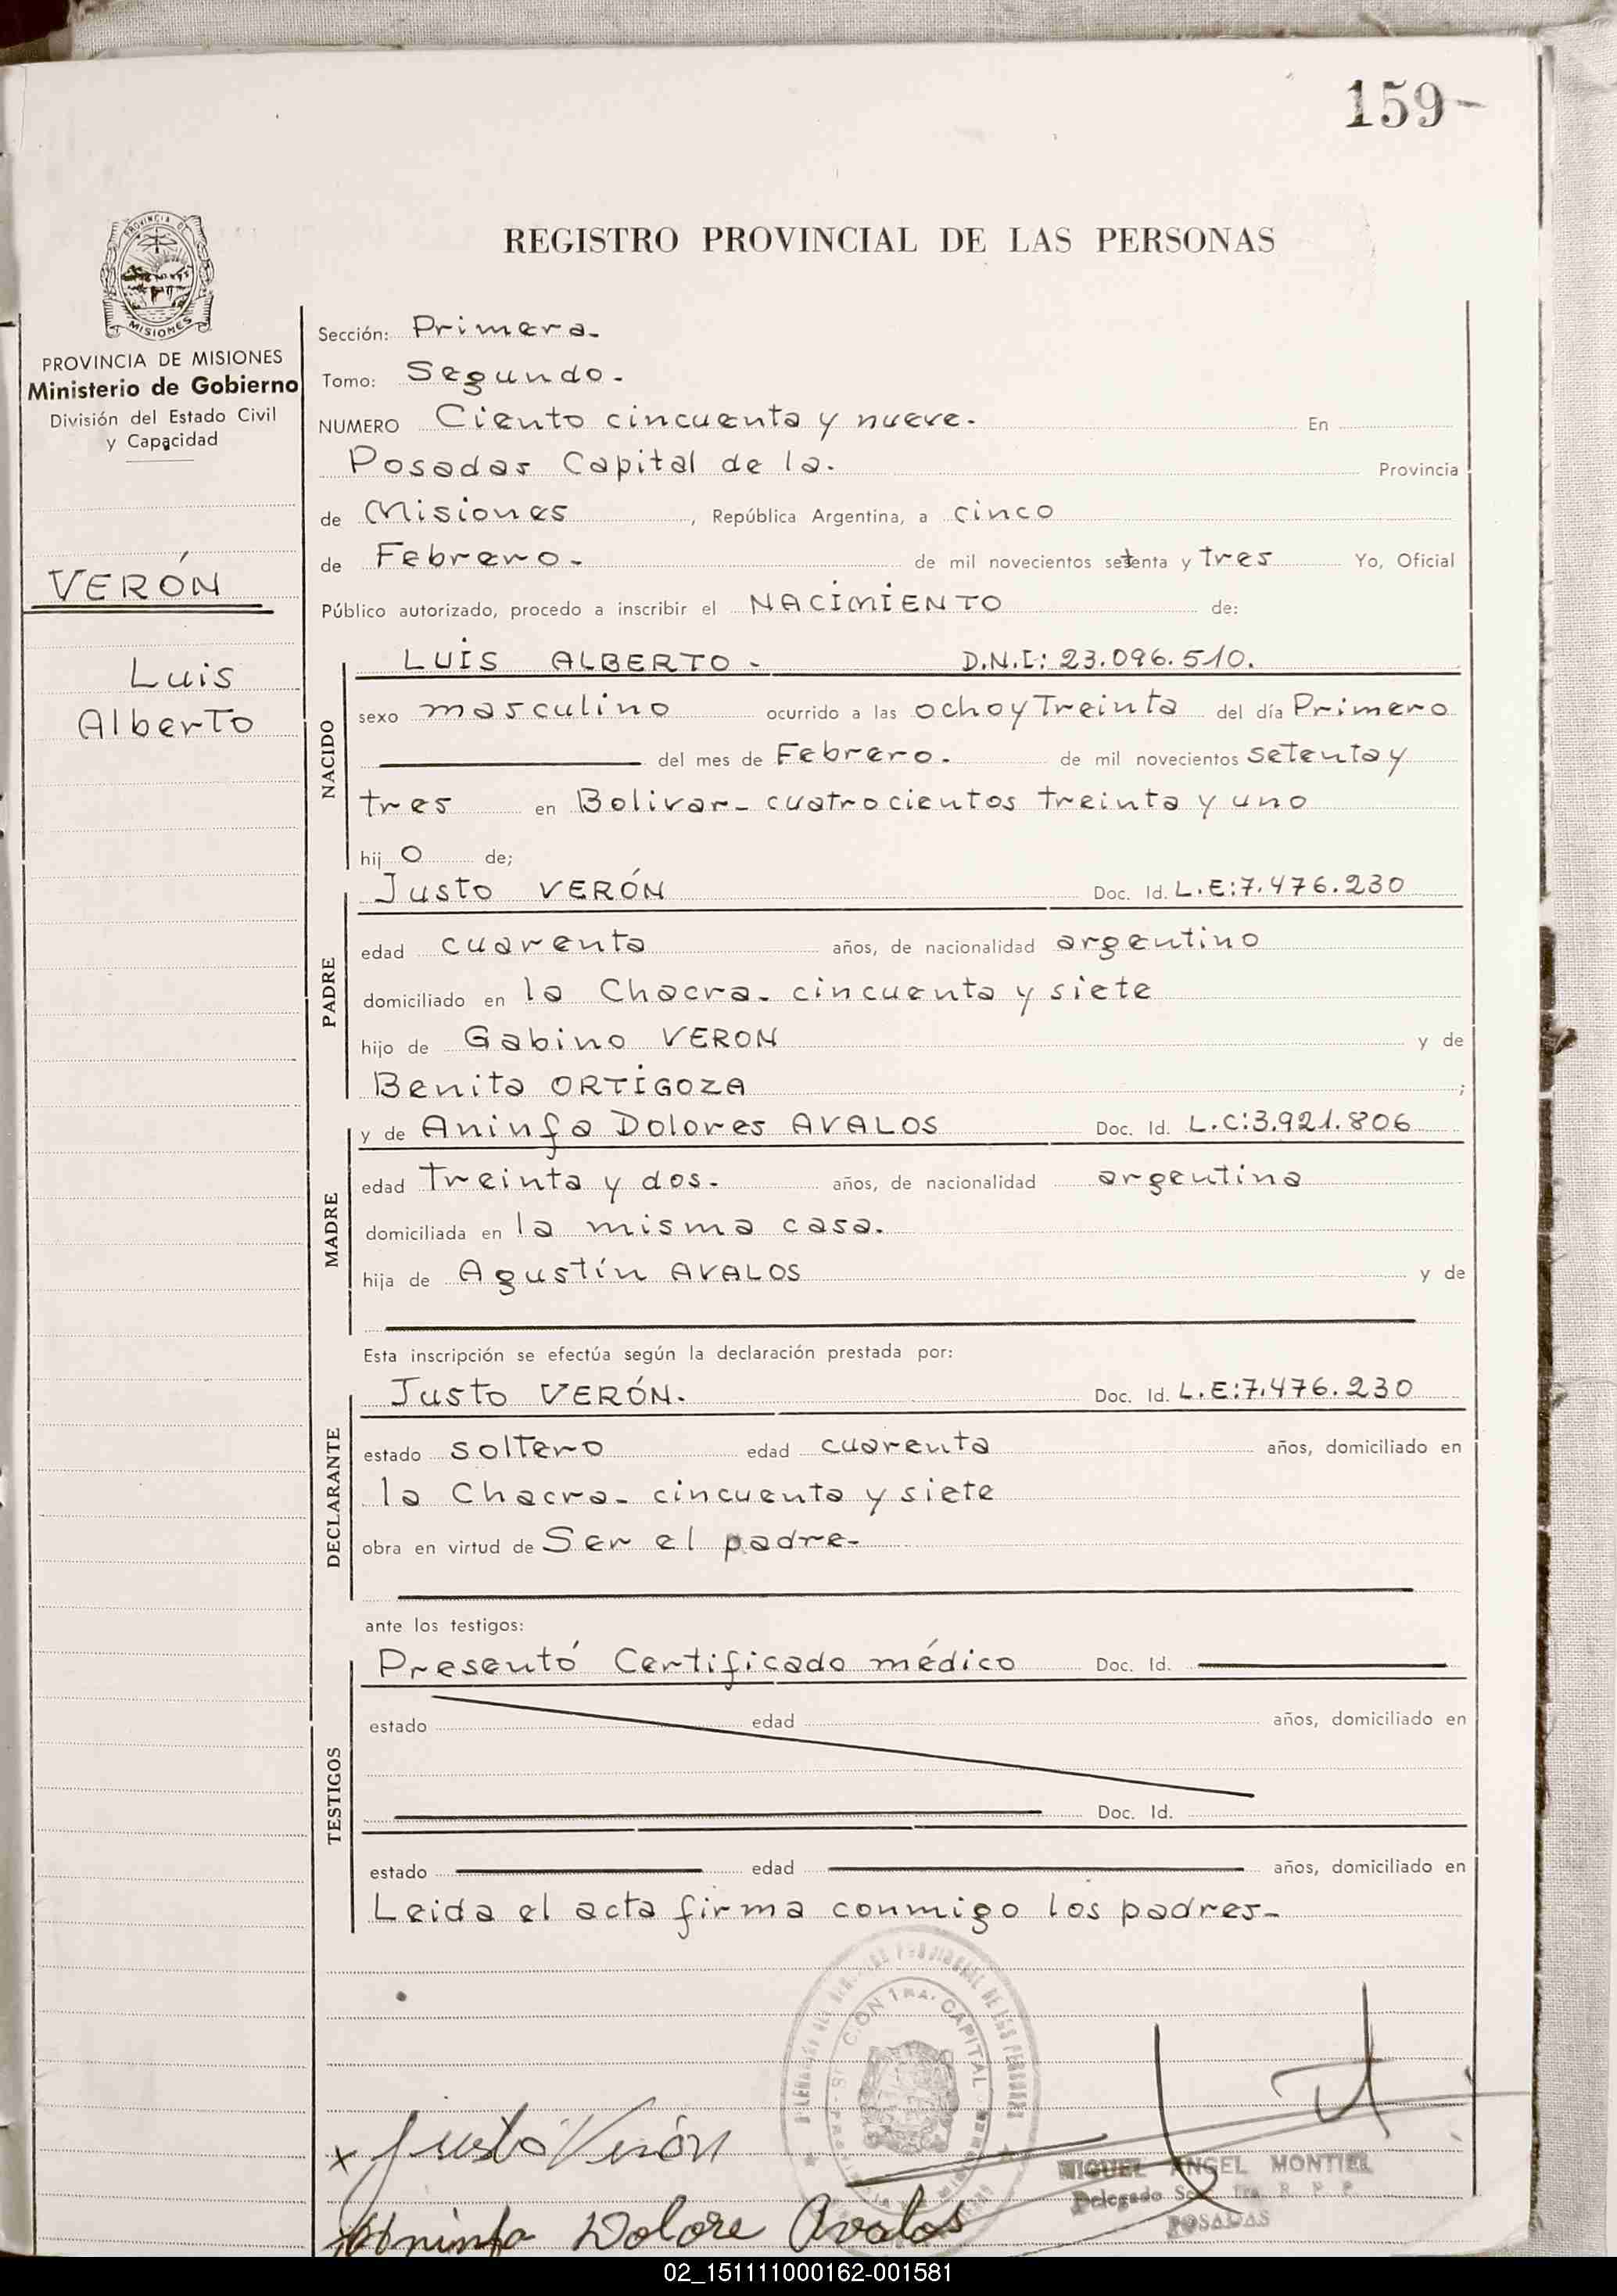 159-
REGISTRO PROVINCIAL DE LAS PERSONAS
PROVINCIA DE
MISIONES
PROVINCIA DE MISIONES
Ministerio de Gobierno
División del Estado Civil
y Capacidad
VERÓN
Luis
Alberto
Sección: Primera.
Tomo: Segundo.
NUMERO Ciento cincuenta y nueve. En
Posadas Capital de la. Provincia
de Misiones, República Argentina, a cinco
de Febrero. de mil novecientos setenta y tres Yo, Oficial
Público autorizado, procedo a inscribir el NACIMIENTO de:
NACIDO
LUIS ALBERTO - D.N.I: 23.096.510.
sexo masculino ocurrido a las ocho y Treinta del día Primero
del mes de Febrero. de mil novecientos setenta y
tres en Bolivar - cuatrocientos treinta y uno
hij o de;
PADRE
Justo VERÓN Doc. Id. L.E:7.476.230
edad cuarenta años, de nacionalidad argentino
domiciliado en la Chacra - cincuenta y siete
hijo de Gabino VERON y de
Benita ORTIGOZA ;
MADRE
y de Aninfa Dolores AVALOS Doc. Id. L.C:3.921.806
edad Treinta y dos. años, de nacionalidad argentina
domiciliada en la misma casa.
hija de Agustín AVALOS y de
Esta inscripción se efectúa según la declaración prestada por:
DECLARANTE
Justo VERÓN. Doc. Id. L.E:7.476.230
estado soltero edad cuarenta años, domiciliado en
la Chacra - cincuenta y siete
obra en virtud de Ser el padre-
ante los testigos:
TESTIGOS
Presentó Certificado médico Doc. Id.
estado edad años, domiciliado en
Doc. Id.
estado edad años, domiciliado en
Leida el acta firma conmigo los padres-
CAPITAL
x Justo Verón
MIGUEL ANGEL MONTIEL
Delegado Sec. 1ra R. P. P.
POSADAS
Aninfa Dolore Avalos
02_151111000162-001581